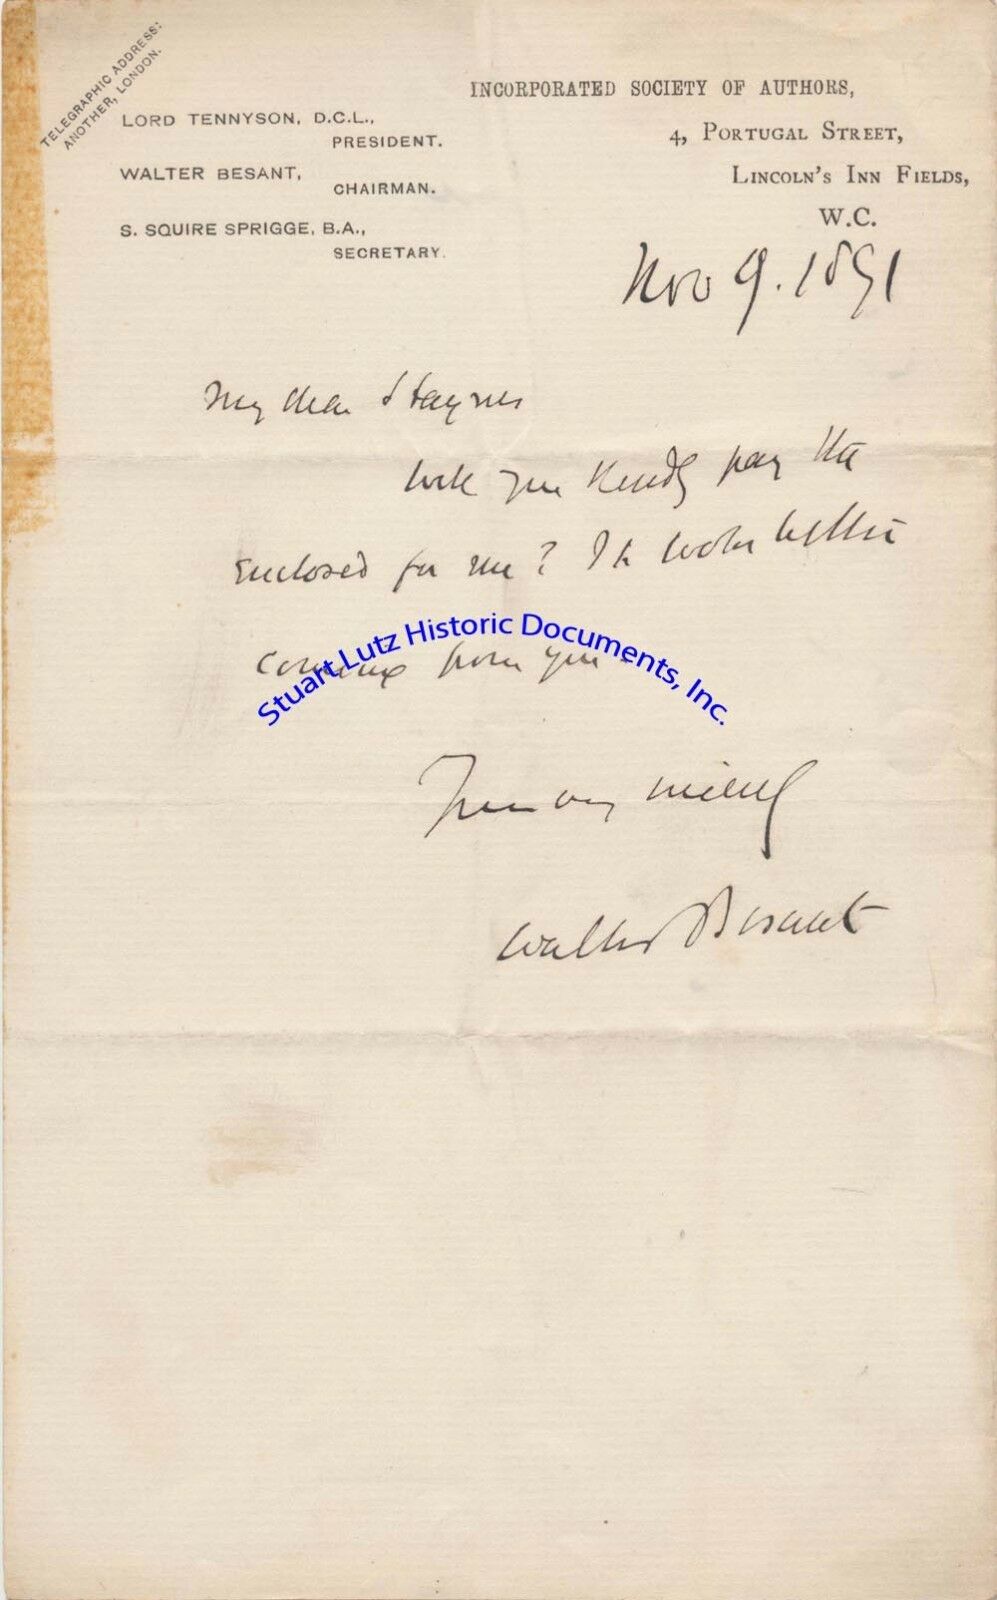 TELEGRAPHIC ADDRESS:
ANOTHER, LONDON.
LORD TENNYSON, D.C.L.,
PRESIDENT.
WALTER BESANT,
CHAIRMAN.
S. SQUIRE SPRIGGE, B.A.,
SECRETARY.
INCORPORATED SOCIETY OF AUTHORS,
4, PORTUGAL STREET,
LINCOLN'S INN FIELDS,
W.C.
Nov 9. 1891
My dear
Will you kindly pay the
enclosed for me? It looks better
coming from you.
Stuart Lutz Historic Documents, Inc.
Yours very
Walter Besant